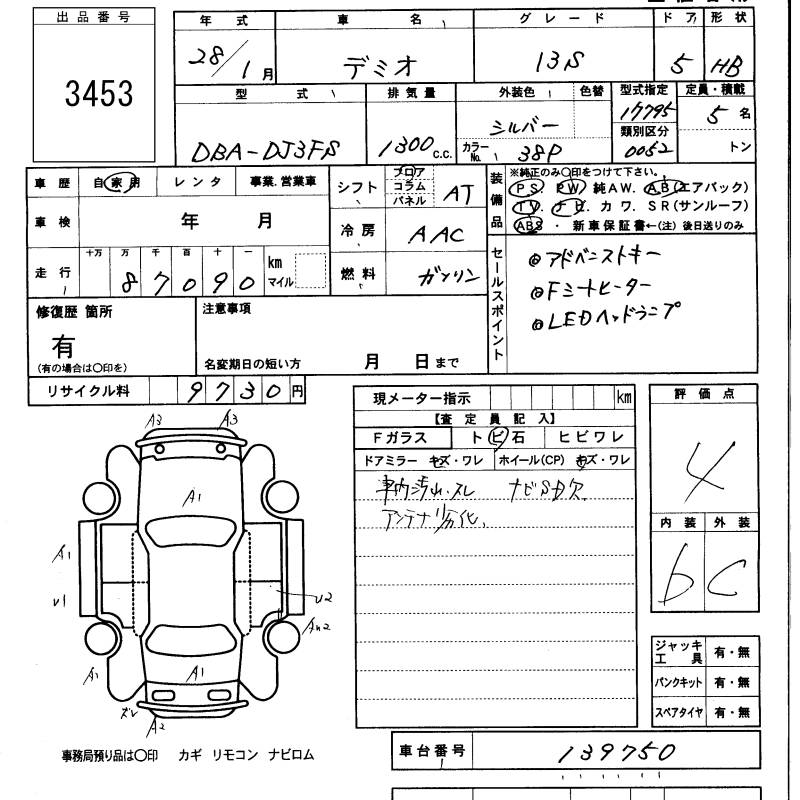 出品番号
3453
年式 車名 グレード ドア 形状
28/1月 デミオ 13S 5 HB
型式 排気量 外装色 色替 型式指定 定員・積載
DBA-DJ3FS 1300 c.c. シルバー 17795 5名
カラーNo. 38P 類別区分 0052 トン
車歴 自家用 レンタ 事業.営業車
シフト フロア コラム パネル AT
装備品 ※純正のみ〇印をつけて下さい。
PS PW 純AW. AB(エアバック)
TV. ナビ. カワ. SR(サンルーフ)
ABS ・ 新車保証書←(注)後日送りのみ
車検 年 月
冷房 AAC
走行 十万 万 千 百 十 一
87090 km マイル
燃料 ガソリン
セールスポイント
◎アドバニストキー
◎Fシートヒーター
◎LEDヘッドランプ
修復歴 箇所
有
(有の場合は〇印を)
注意事項
名変期日の短い方 月 日まで
リサイクル料 9730円
現メーター指示 km
【査定員記入】
Fガラス トビ石 ヒビワレ
ドアミラー キズ・ワレ ホイール(CP) キズ・ワレ
車内汚れ.スレ ナビSD欠.
アンテナ劣化.
評価点
4
内装 外装
b C
A3 A3
A1
A1
V1 U2
An2
A1 A1
ズレ
A2
ジャッキ工具 有・無
パンクキット 有・無
スペアタイヤ 有・無
事務局預り品は〇印 カギ リモコン ナビロム
車台番号 139750